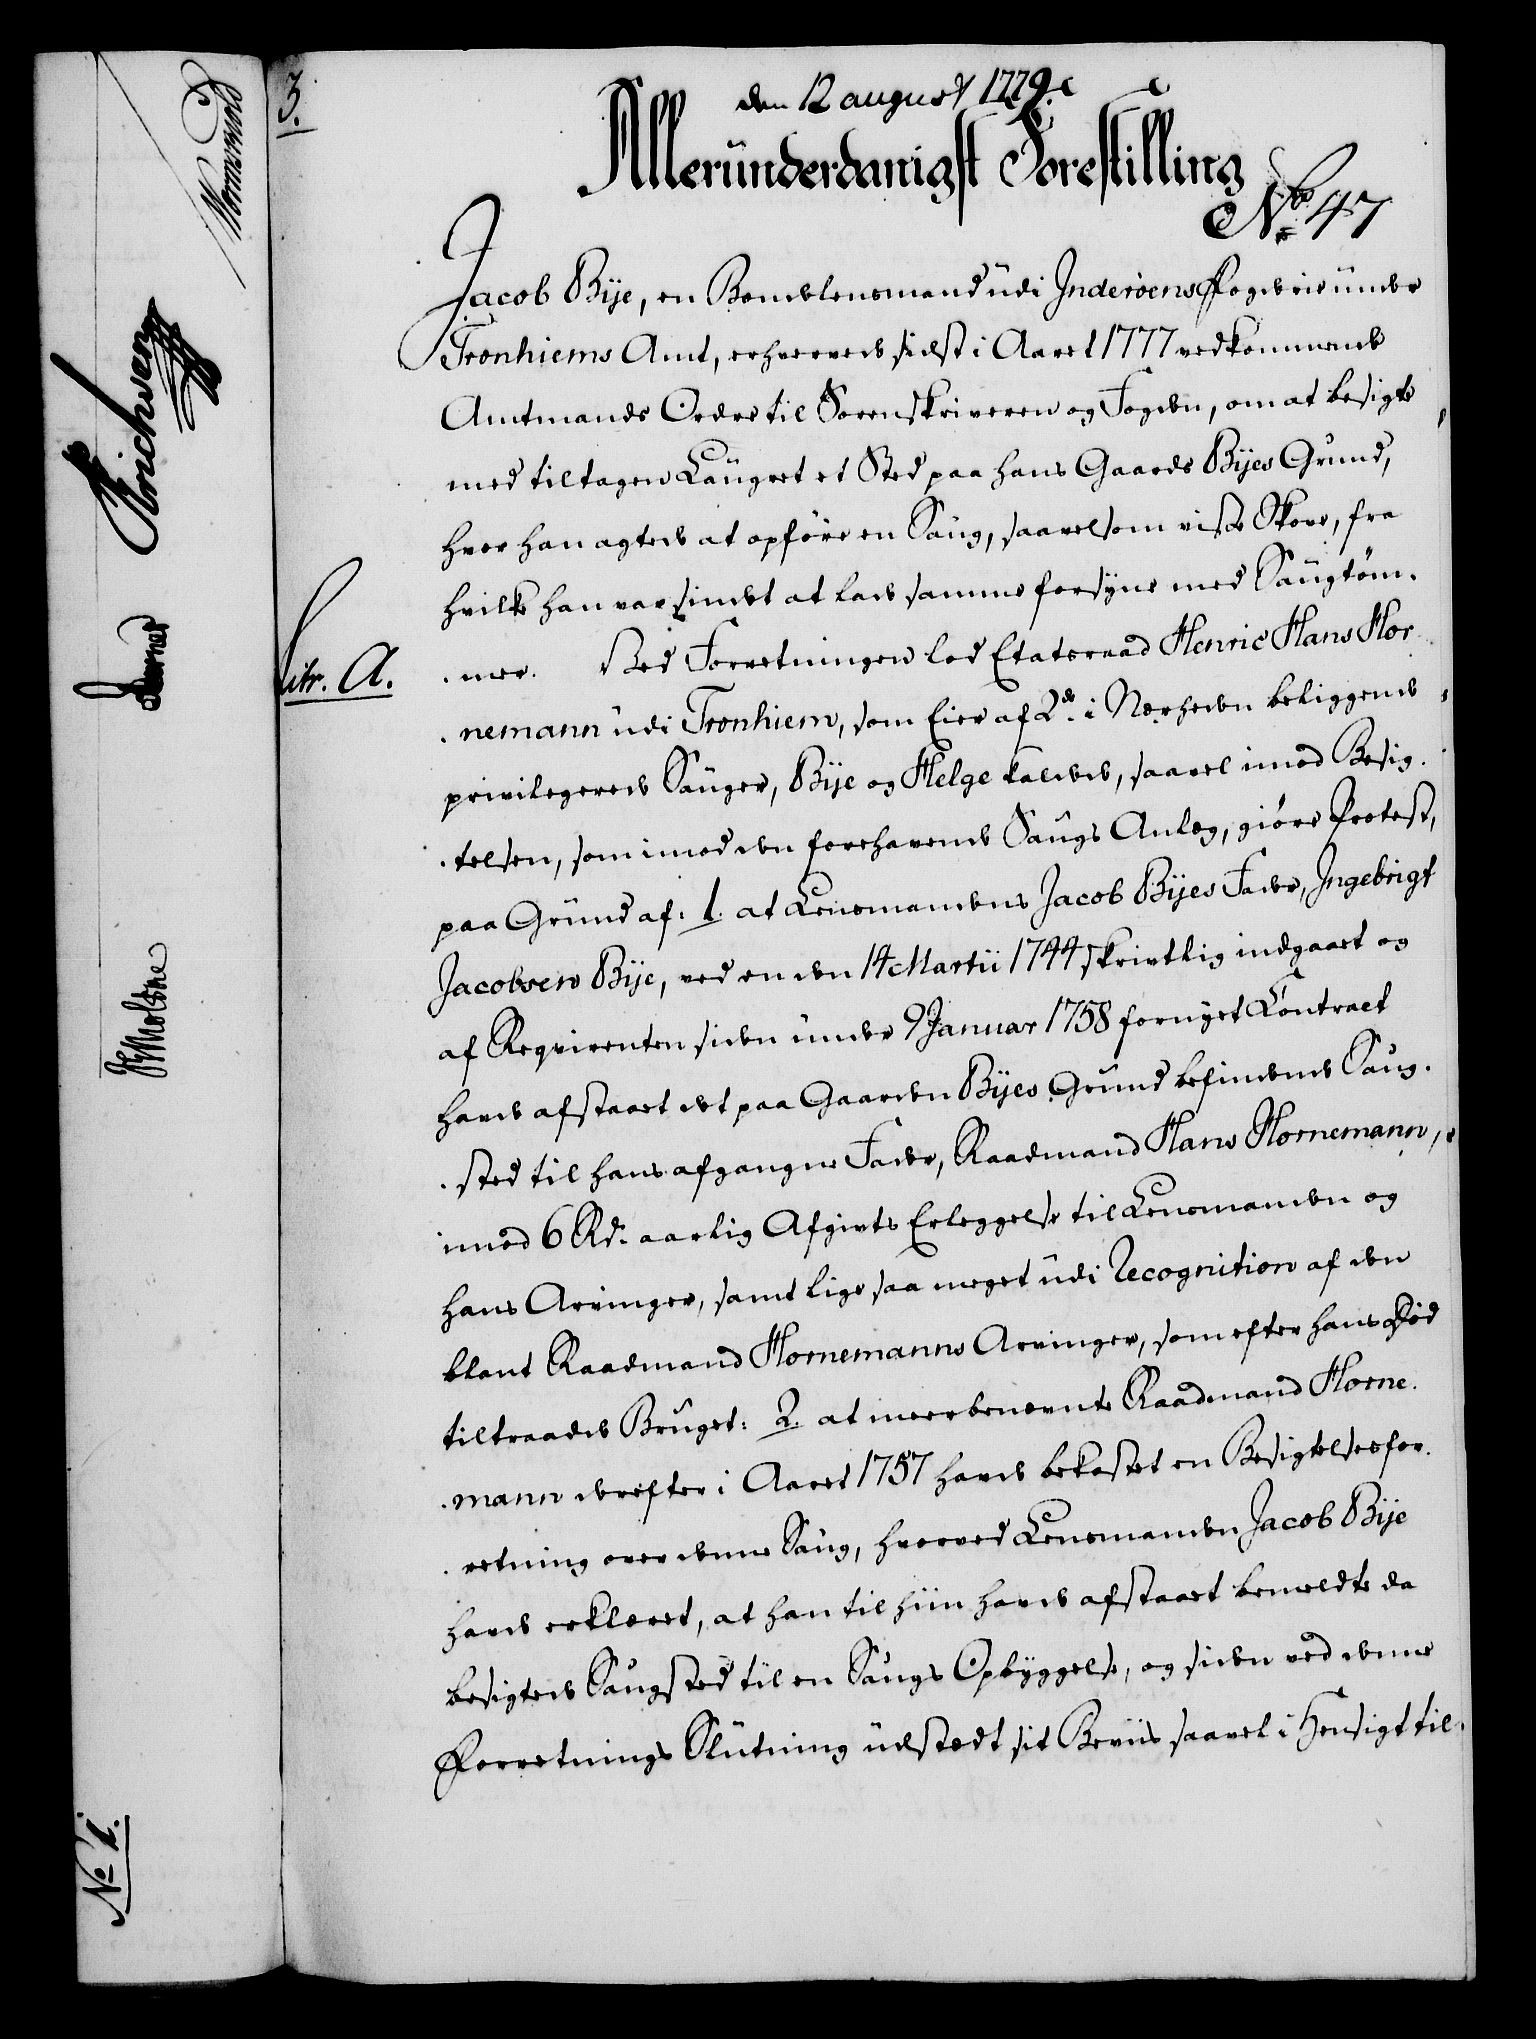 3.
den 12 august 1779.
Allerunderdanigst Forestilling
No 47
Jacob Bije, en Bondelensmand udi Inderøens Fogderie under
Tronhiems Amt, erhvervede sidst i Aaret 1777 vedkommende
Amtmands Ordre til Sorenskriveren og Fogden, om at besigte
med tiltagen Laugret et Sted paa hans Gaards Bijes Grund,
hvor han agtede at opføre en Saug, saavelsom visse Skove, fra
hvilke han var sindet at lade samme forsyne med Saugtøm-
mer. Ved Forretningen lod Etatsraad Henric Hans Hor-
Litr. A.
nemann udi Tronhiem, som Eier af 2de i Nærheden beliggende
privilegerede Sauger, Bije og Helge kaldede, saavel imod Besig-
telsen, som imod den forehavende Saugs Anlæg, giøre Protest,
paa Grund af: 1. at Lensmandens Jacob Bijes Fader, Ingebrigt
Jacobsen Bije, ved en den 14 Martii 1744 skrivtlig indgaaet og
af Reqvirenten siden under 9 Januar 1758 fornyet Contract
havde afstaaet det paa Gaarden Bijes Grund befindende Saug-
sted til hans afgangne Fader, Raadmand Hans Hornemann,
imod 6 Rd. aarlig Afgivts Erleggelse til Lensmanden og
hans Arvinger, samt lige saa meget udi Recognition af den
blant Raadmand Hornemanns Arvinger, som efter hans Død
tiltraadde Bruget: 2. at meerbenævnte Raadmand Horne-
mann derefter i Aaret 1757 havde bekostet en Besigtelsesfor-
retning over denne Saug, hvorved Lensmanden Jacob Bije
havde erklæret, at han til hiin havde afstaaet bemeldte da
besigtede Saugsted til en Saugs Opbyggelse, og siden ved denne
Forretnings Slutning udstedt sit Beviis saavel i Hensigt til
No 1.